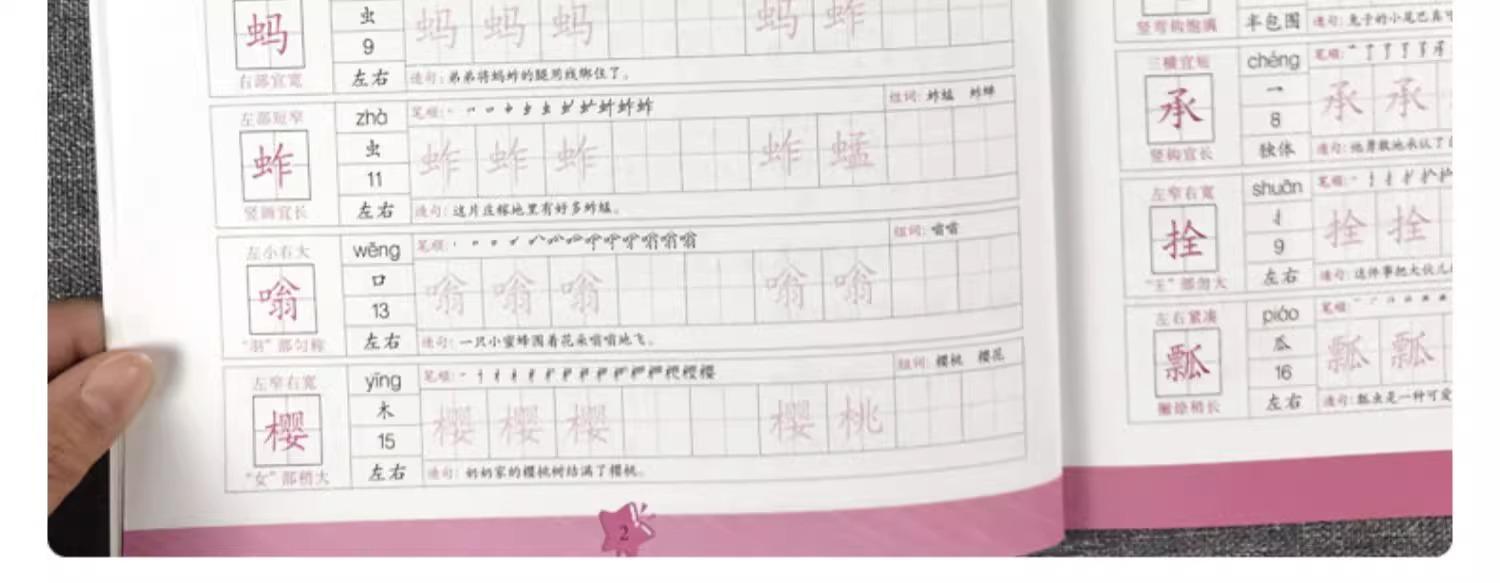 蚂
右部宜宽
虫
9
左右
蚂 蚂 蚂 蚂 蚱
造句: 弟弟将蚂蚱的腿用线绑住了。
左部短窄
蚱
竖画宜长
zhà
虫
11
左右
笔顺:
组词: 蚱蜢 蚱蝉
蚱 蚱 蚱 蚱 蜢
造句: 这片庄稼地里有好多蚱蜢。
左小右大
嗡
“羽”部匀称
wēng
口
13
左右
笔顺:
组词: 嗡嗡
嗡 嗡 嗡 嗡 嗡
造句: 一只小蜜蜂围着花朵嗡嗡地飞。
左窄右宽
樱
“女”部稍大
yīng
木
15
左右
笔顺:
组词: 樱桃 樱花
樱 樱 樱 樱 桃
造句: 奶奶家的樱桃树结满了樱桃。
2
竖弯钩饱满
半包围
造句: 兔子的小尾巴真可
三横宜短
承
竖钩宜长
chéng
8
独体
笔顺:
承 承
造句: 他勇敢地承认了
左窄右宽
拴
“王”部勿大
shuān
扌
9
左右
笔顺:
拴 拴
造句: 这件事把大伙儿
左右紧凑
瓢
撇捺稍长
piáo
瓜
16
左右
笔顺:
瓢 瓢
造句: 瓢虫是一种可爱